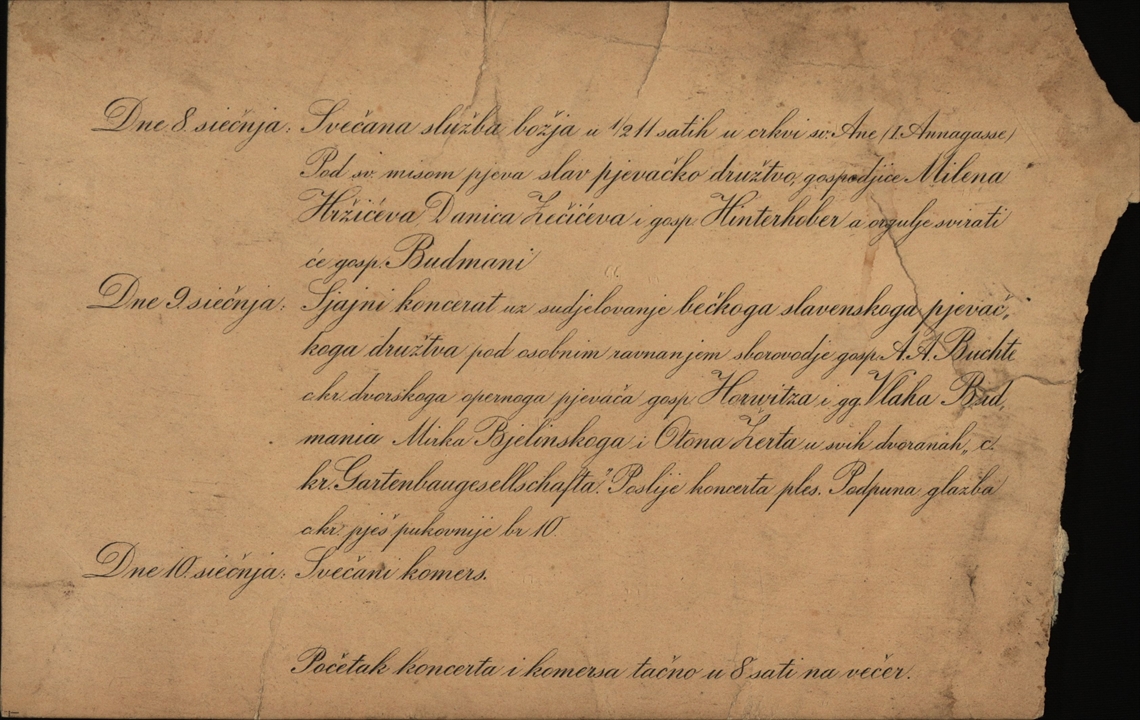 Dne 8. siečnja: Svečana služba božja u 1/2 11 satih u crkvi sv. Ane (I. Annagasse)
Pod sv. misom pjeva slav pjevačko družtvo, gospodjice Milena
Hržićeva Danica Zečićeva i gosp. Hinterhober a orgulje svirati
će gosp. Budmani
Dne 9. siečnja: Sjajni koncerat uz sudjelovanje bečkoga slavenskoga pjevač,
koga družtva pod osobnim ravnanjem sborovodje gosp. A. A. Buchte
c. kr. dvorskoga opernoga pjevača gosp Horwitza i gg. Vlaha Bud,
mania Mirka Bjelinskoga i Otona Žerta u svih dvoranah „c.
kr. Gartenbaugesellschafta“. Poslije koncerta ples. Podpuna glazba
c. kr. pješ pukovnije br 10.
Dne 10. siečnja: Svečani komers.
Početak koncerta i komersa tačno u 8 sati na večer.